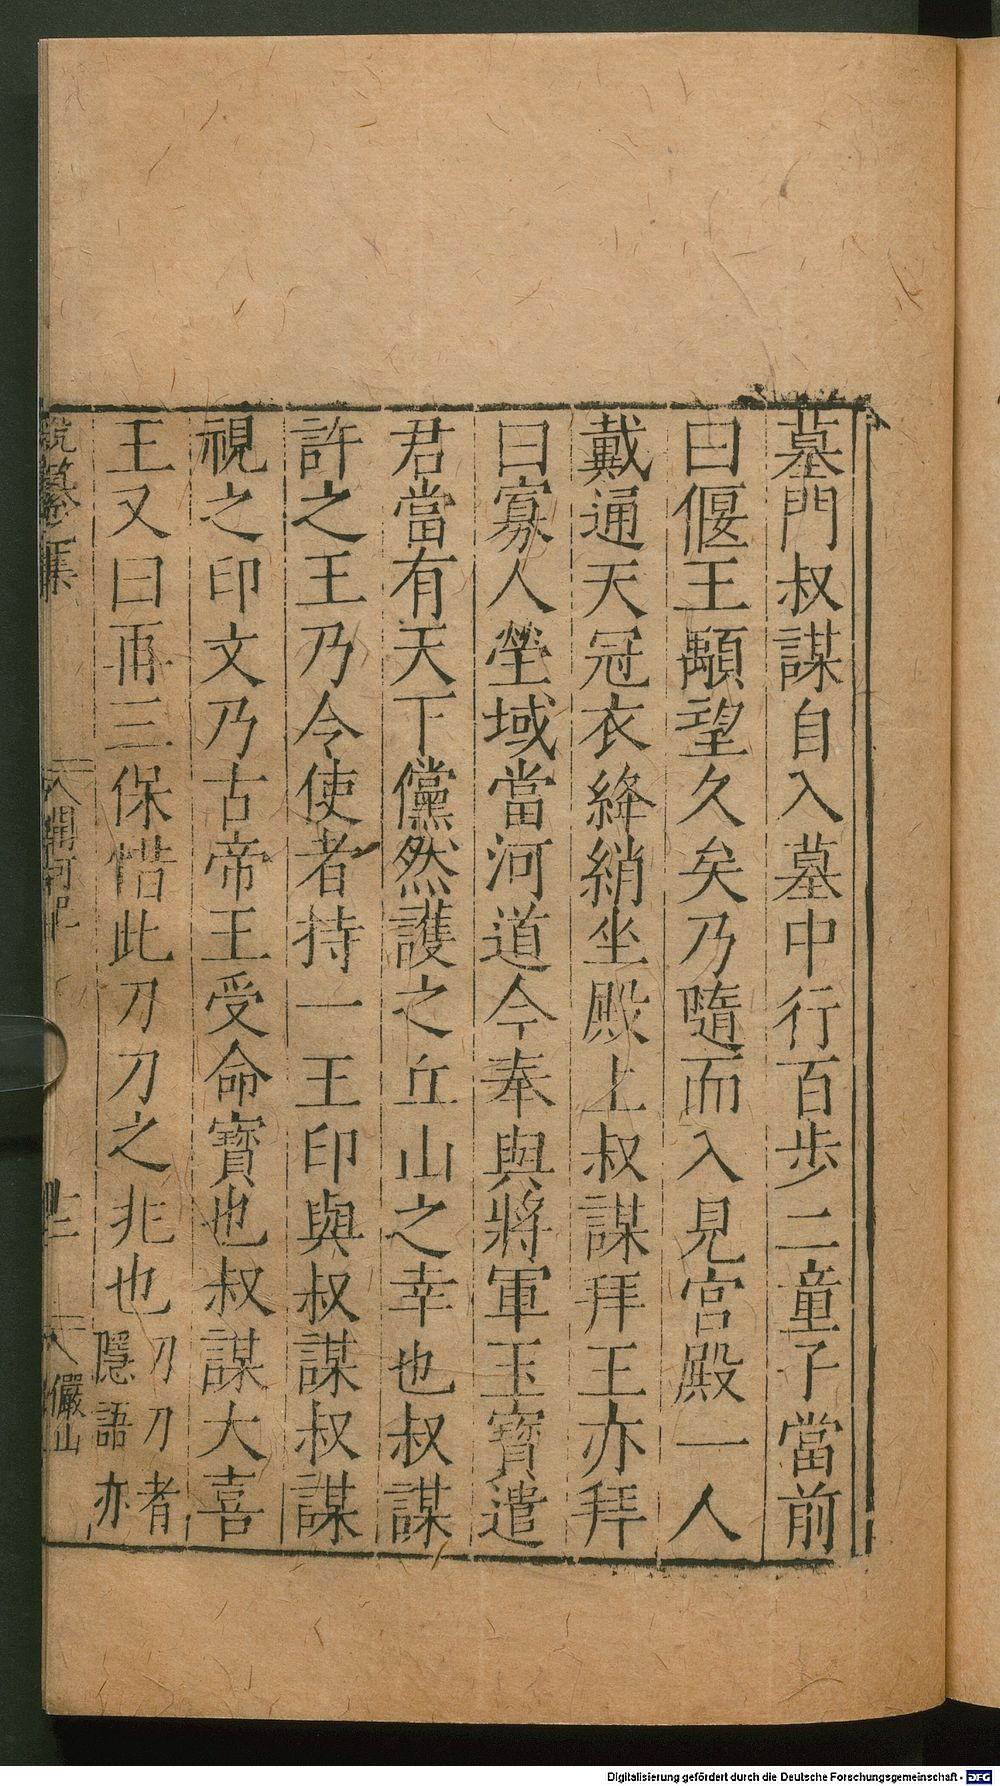 墓門叔謀自入墓中行百步二童子當前
曰偃王顒望久矣乃隨而入見宮殿一人
戴通天冠衣絳綃坐殿上叔謀拜王亦拜
曰寡人塋域當河道今奉與將軍玉寶遣
君當有天下儻然護之丘山之幸也叔謀
許之王乃令使者持一王印與叔謀叔謀
視之印文乃古帝王受命寶也叔謀大喜
王又曰再三保惜此刀刀之兆也刀刀者
隱語亦
說纂集
開河記
儼山
Digitalisierung gefördert durch die Deutsche Forschungsgemeinschaft - DFG